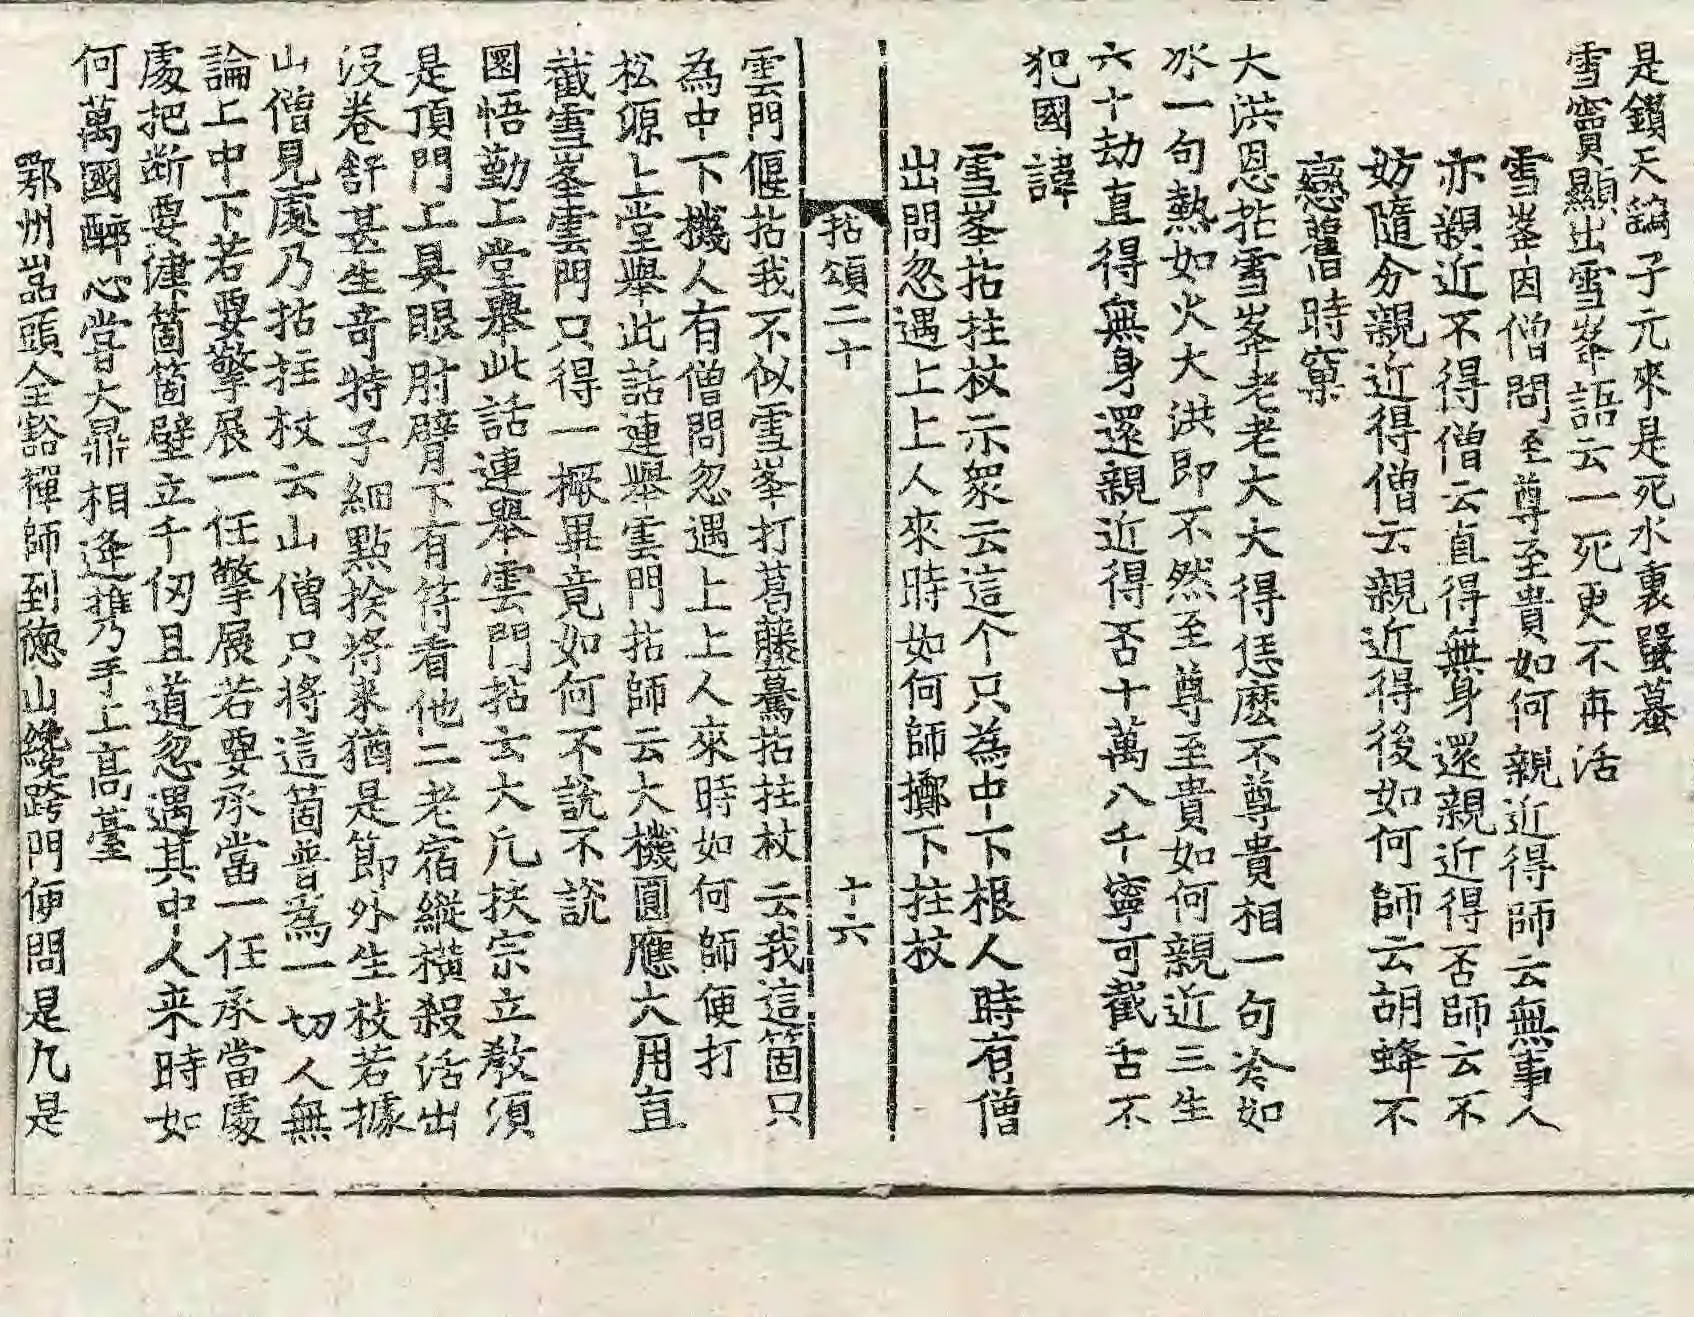 是鑽天鷂子元來是死水裏蝦蟇
雪竇顯出雪峯語云一死更不再活
雪峯因僧問至尊至貴如何親近得師云無事人
亦親近不得僧云直得無身還親近得否師云不
妨隨分親近得僧云親近得後如何師云胡蜂不
戀舊時窠
大洪恩拈雪峯老老大大得恁麽不尊貴相一句冷如
氷一句熱如火大洪即不然至尊至貴如何親近三生
六十劫直得無身還親近得否十萬八千寧可截舌不
犯國諱
雪峯拈拄杖示衆云這个只為中下根人時有僧
出問忽遇上上人來時如何師擲下拄杖
拈頌二十 十六
雲門偃拈我不似雪峯打葛藤驀拈拄杖云我這箇只
為中下機人有僧問忽遇上上人來時如何師便打
松源上堂舉此話連舉雲門拈師云大機圓應大用直
截雪峯雲門只得一橛畢竟如何不說不說
圜悟勤上堂舉此話連舉雲門拈云大凡扶宗立教須
是頂門上具眼肘臂下有符看他二老宿縱橫殺活出
沒卷舒甚生竒特子細點撿將来猶是節外生枝若據
山僧見處乃拈拄杖云山僧只將這箇普為一切人無
論上中下若要擎展一任擎展若要承當一任承當處
處把断要津箇箇壁立千仭且道忽遇其中人来時如
何萬國醉心嘗大鼎相逢携乃手上高臺
鄂州嵓頭全豁禪師到德山纔跨門便問是凢是